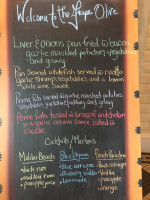 Welcome to the Grape & Olive
Liver & Onions pan fried w/ bacon
garlic mashed potatoes vegetables
and gravy
Pan Seared whitefish served w/ rice
vegetables and a lemon
white wine sauce
Prime Rib garlic mashed potatoes
vegetables yorkshire pudding and gravy
Penne tossed w/ broccoli and chicken
in a garlic cream sauce baked w/
cheese
Cocktails / Martinis
Malibu Beach
dark rum
malibu rum
pineapple juice
Blue Lagoon
blue curacao
vodka
lemonade
Peach Paradise
peach schnapps
vodka
pineapple
orange